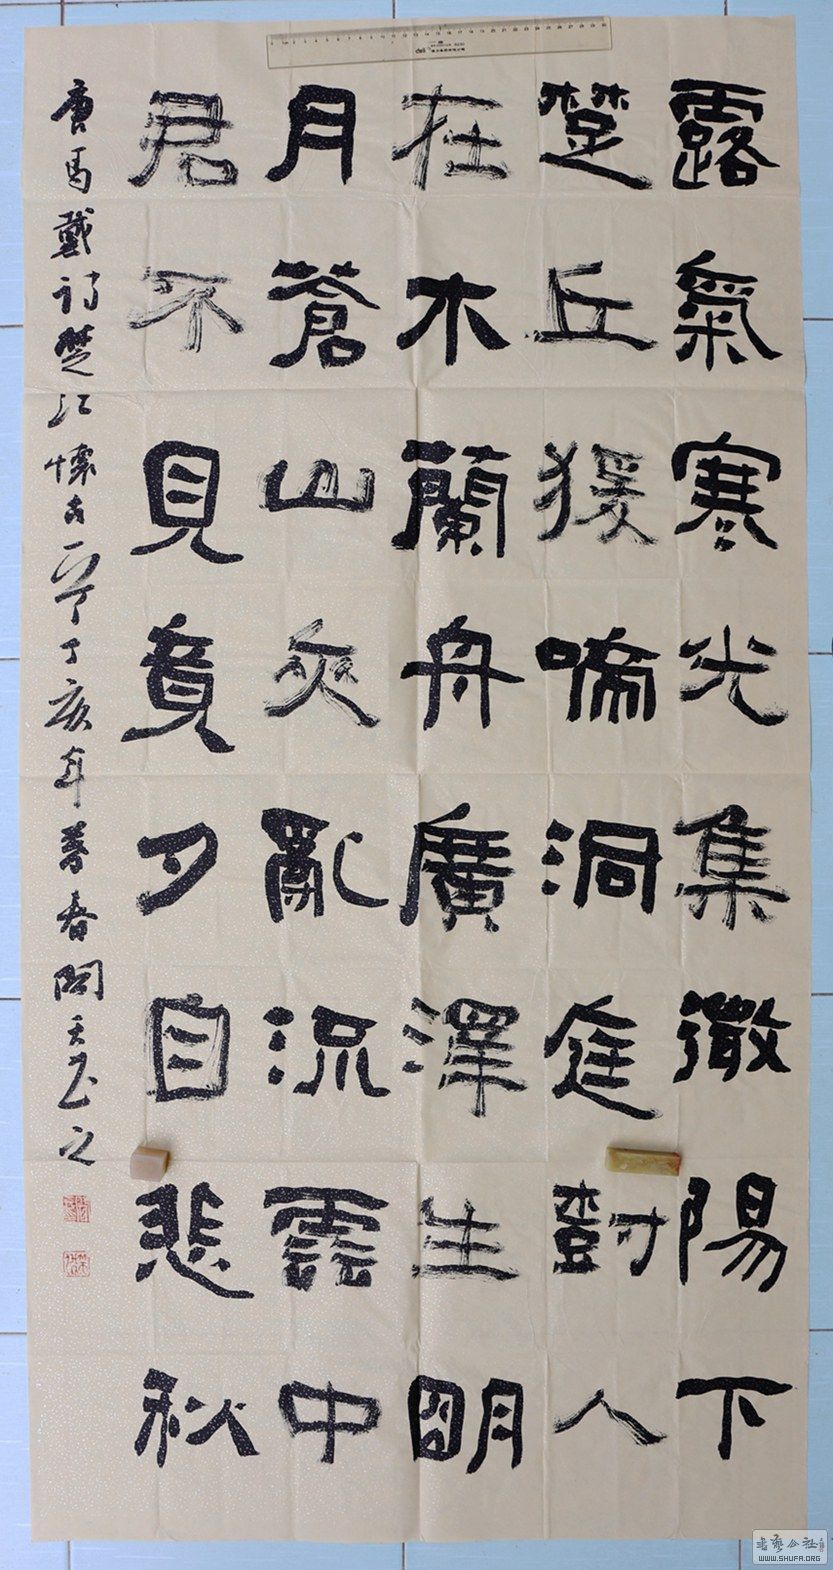 露氣寒光集微陽下
楚丘猨啼洞庭樹人
在木蘭舟廣澤生明
月蒼山夾亂流雲中
君不見竟夕自悲秋
唐馬戴詩楚江懷古一首丁亥年暮春天書之
deli
書藝公社
WWW.SHUFA.ORG